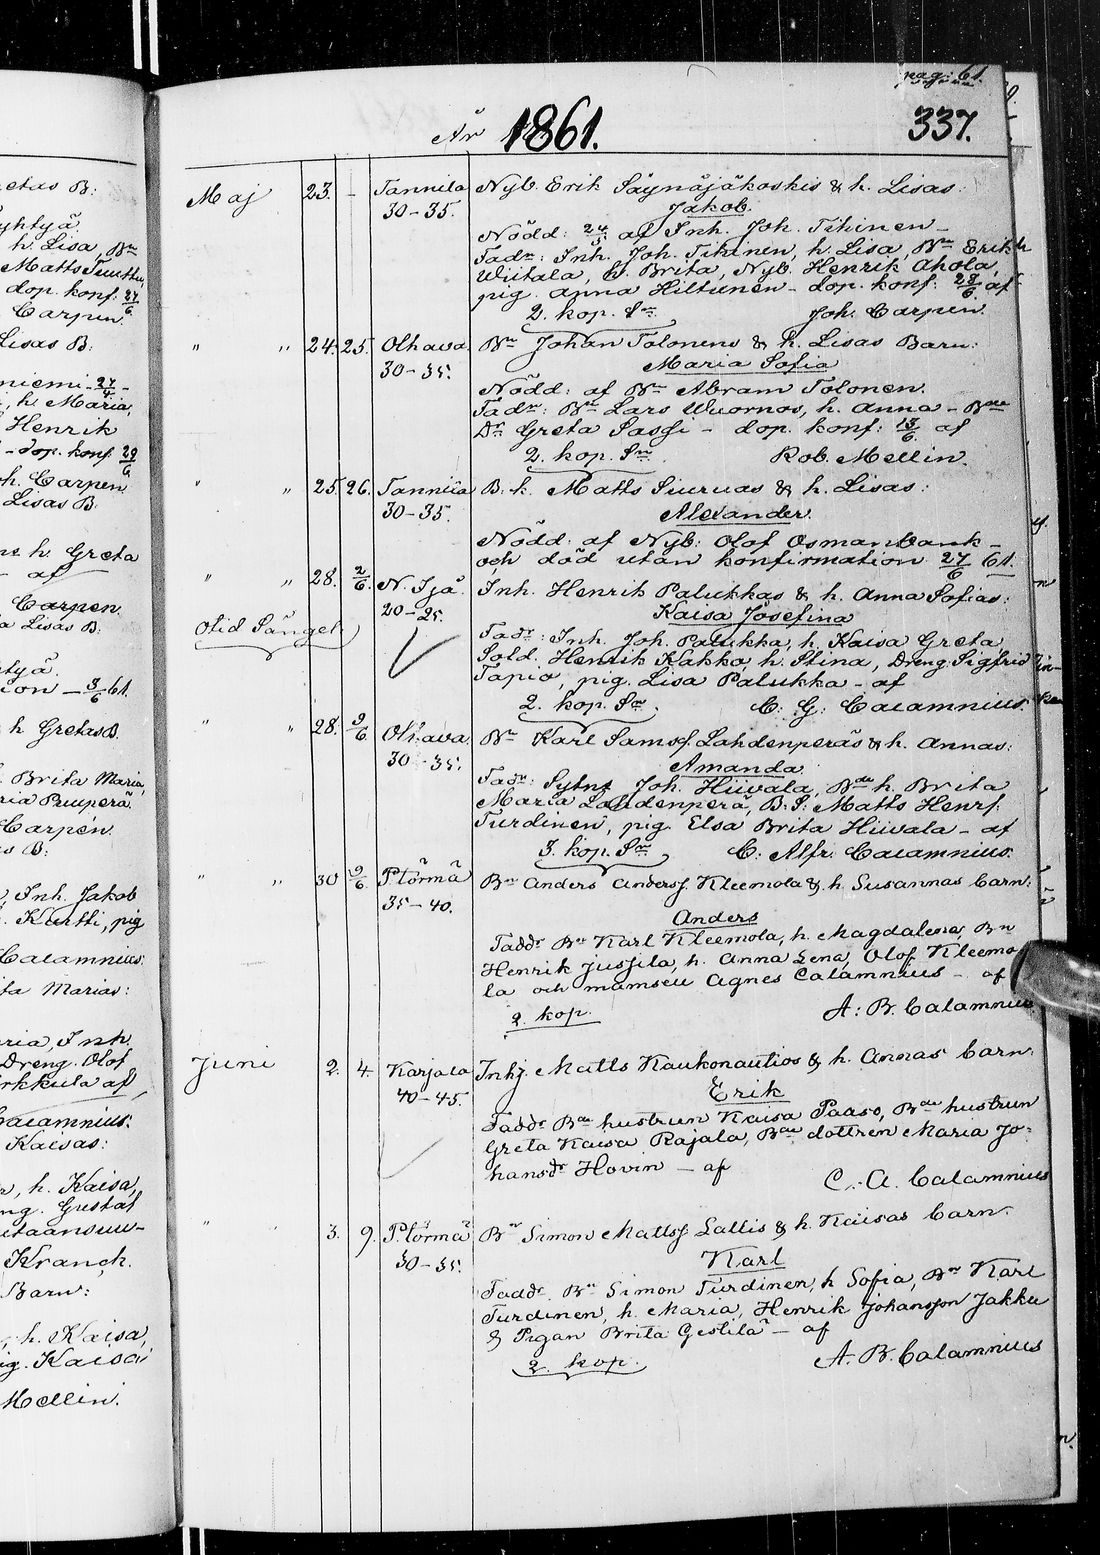 etas B:
yhtyä
h. Lisa, Bn
Matts Tuuttu,
dop. konf: 27/6
Carpen.
Lisas B:
niemi - 27/4 -
, h. Maria,
Henrik
- dop. konf 29/6
oh. Carpen
Lisas B:
ns h. Greta
- af
Carpen.
a Lisas B:
tyä
ion - 3/6 61.
h Gretas B.
Brita Maria,
ria Ruuperä.
Carpén.
as B:
, Inh. Jakob
. Kurtti, pig
Calamnius.
ta Marias:
ria, Inh.
Dreng. Olof
irkkula af,
Calamnius.
Kaisas:
r, h. Kaisa,
ng. Gustaf
etaansuu-
Kranck.
Barn:
, h. Kaisa,
ig. Kaisa
Mellin.
pag: 61.
År 1861. 337.
Maj 23. - Tannila Nyb. Erik Säynäjäkoskis & h. Lisas:
30-35. Jakob.
Nödd: 24/5 af Inh. Joh. Tihinen -
Fadr: Inh. Joh. Tihinen, h. Lisa, Bn Erik
Wiitala, h. Brita, Nyb. Henrik Ahola,
pig. Anna Hiltunen - dop. konf: 28/6 af
2. kop. Sm. Joh: Carpen.
" " 24. 25. Olhava Bn Johan Tolonens & h. Lisas Barn:
30-35. Maria Sofia
Nödd: af Bn Abram Tolonen.
Fadr: Bn Lars Wuornos, h. Anna - Bde
Dr Greta Sassi - dop. konf: 13/6 af
2. kop. Sm. Rob. Mellin.
" " 25. 26. Tannila B. k. Matts Siuruas & h. Lisas:
30-35. Alexander.
Nödd: af Nyb: Olof Osmankank -
och död utan konfirmation 27/6 61.
" " 28. 2/6 N. Ijå Inh. Henrik Palukkas & h. Anna Sofias:
20-25. Kaisa Josefina
Otid Sängel.
Fadr: Inh. Joh. Palukka, h. Kaisa Greta,
Sold. Henrik Kakko, h. Stina, Dreng Sigfrid
Tapio, pig. Lisa Palukka - af
2. kop. Sm. C. G. Calamnius.
" " 28. 9/6 Olhava Bn Karl Samsf. Lahdenperäs & h. Annas:
30-35. Amanda.
Fadr: Sytng Joh. Hiivala, Bde h. Brita
Maria Lahdenperä, B. S: Matts Henrs.
Turdinen, pig. Elsa Brita Hiivala - af
3. kop. Sm C. Alfr. Calamnius.
" " 30 9/6 Ptörmä Bn Anders Andersf. Kleemola & h. Susannas barn:
35-40. Anders
Faddr Bn Karl Kleemola, h. Magdalena, Bn
Henrik Jussila, h. Anna Lena, Olof Kleemo-
la och mamsell Agnes Calamnius - af
2. kop. A: B. Calamnius
Juni 2. 4. Karjala Inhj. Matts Kaukonautios & h. Annas barn:
40-45. Erik
Faddr Bde hustrun Kaisa Paaso, Bde hustrun
Greta Kaisa Rajala, Bde dottren Maria Jo-
hansdr Hovin - af
C. A. Calamnius
" " 3. 9. Ptörmä Bn Simon Mattsf Lallis & h. Kaisas barn.
30-35. Karl
Faddr. Bn Simon Turdinen, h Sofia, Bn Karl
Turdinen, h. Maria, Henrik Johansson Jakku
& Pigan Brita Gestilä - af
2. kop. A. B. Calamnius